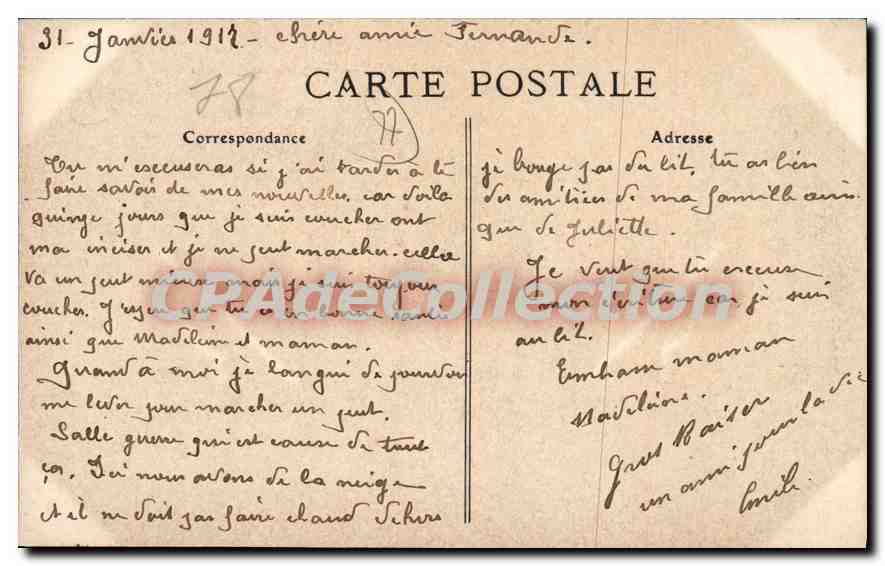 31 - Janvier 1917 - chère amie Fernande.
78
CARTE POSTALE
77
Correspondance
Tu m'escuseras si j'ai tarder à te
faire savoir de mes nouvelles, car voila
quinze jours que je suis coucher ont
ma inciser et je ne peut marcher. celle
va un peut mieux mais je sui toujour
coucher. J'espere que tu es en bonne santé
ainsi que Madeleine et maman.
Quand à moi je langui de pourvoir
me lever pour marcher un peut.
Salle guerre qui est cause de tout
ça. Ici nous avons de la neige
et il ne doit pas faire chaud dehors
Adresse
je bouge pas du lit, tu as bien
des amitiées de ma famille ainsi
que de Juliette.
Je veut que tu escuse
mon écriture car je suis
au lit.
Embrasse maman
Madeleine.
Gros Baiser
un ami pour la vie
Emile.
CPAdeCollection